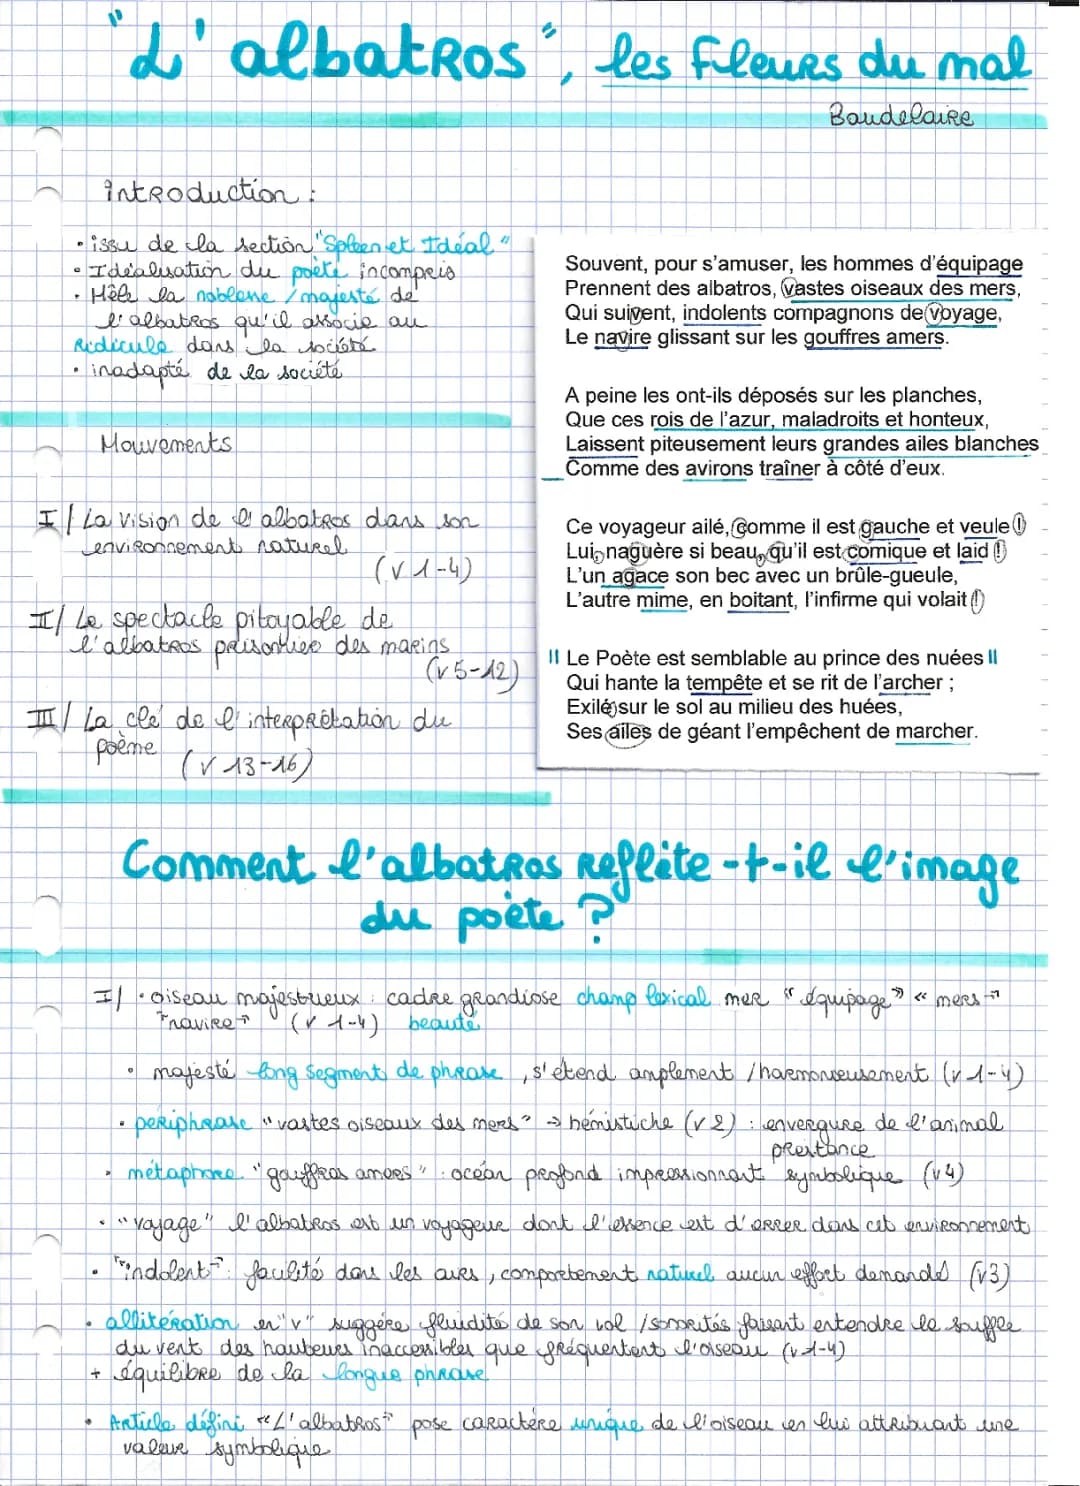 "L'albatros", les Fleurs du mal
Baudelaire
Introduction :
• issu de la section "Spleen et Idéal"
• Idéalisation du poète incompris
• Mêle la noblesse / majesté de
l'albatros qu'il associe au
Ridicule dans la société
• inadapté de la société
Mouvements
I/ La vision de l'albatros dans son
environnement naturel
(v 1-4)
II/ Le spectacle pitoyable de
l'albatros prisonnier des marins
(v 5-12)
III/ La clé de l'interprétation du
poème
(v 13-16)
Souvent, pour s'amuser, les hommes d'équipage
Prennent des albatros, vastes oiseaux des mers,
Qui suivent, indolents compagnons de voyage,
Le navire glissant sur les gouffres amers.
A peine les ont-ils déposés sur les planches,
Que ces rois de l'azur, maladroits et honteux,
Laissent piteusement leurs grandes ailes blanches
Comme des avirons traîner à côté d'eux.
Ce voyageur ailé, comme il est gauche et veule !
Lui, naguère si beau, qu'il est comique et laid !
L'un agace son bec avec un brûle-gueule,
L'autre mime, en boitant, l'infirme qui volait !
Le Poète est semblable au prince des nuées
Qui hante la tempête et se rit de l'archer ;
Exilé sur le sol au milieu des huées,
Ses ailes de géant l'empêchent de marcher.
Comment l'albatros Reflète-t-il l'image
du poète ?
I/ • oiseau majestueux : cadre grandiose champ lexical mer "équipage" "mers"
"navire" (v 1-4) beauté
• majesté long segment de phrase, s'étend amplement / harmonieusement (v 1-4)
• périphrase "vastes oiseaux des mers" → hémistiche (v 2) : envergure de l'animal
prestance
• métaphore "gouffres amers" : océan profond impressionnant symbolique (v 4)
• "voyage" l'albatros est un voyageur dont l'essence est d'errer dans cet environnement
• "indolent" : faculité dans les airs, comportement naturel aucun effort demandé (v3)
• allitération en "v" suggère fluidité de son vol / sonorités faisant entendre le souffle
du vent des hauteurs inaccessibles que fréquentent l'oiseau (v 1-4)
+ équilibre de la longue phrase
• Article défini "L'albatros" pose caractère unique de l'oiseau en lui attribuant une
valeur symbolique